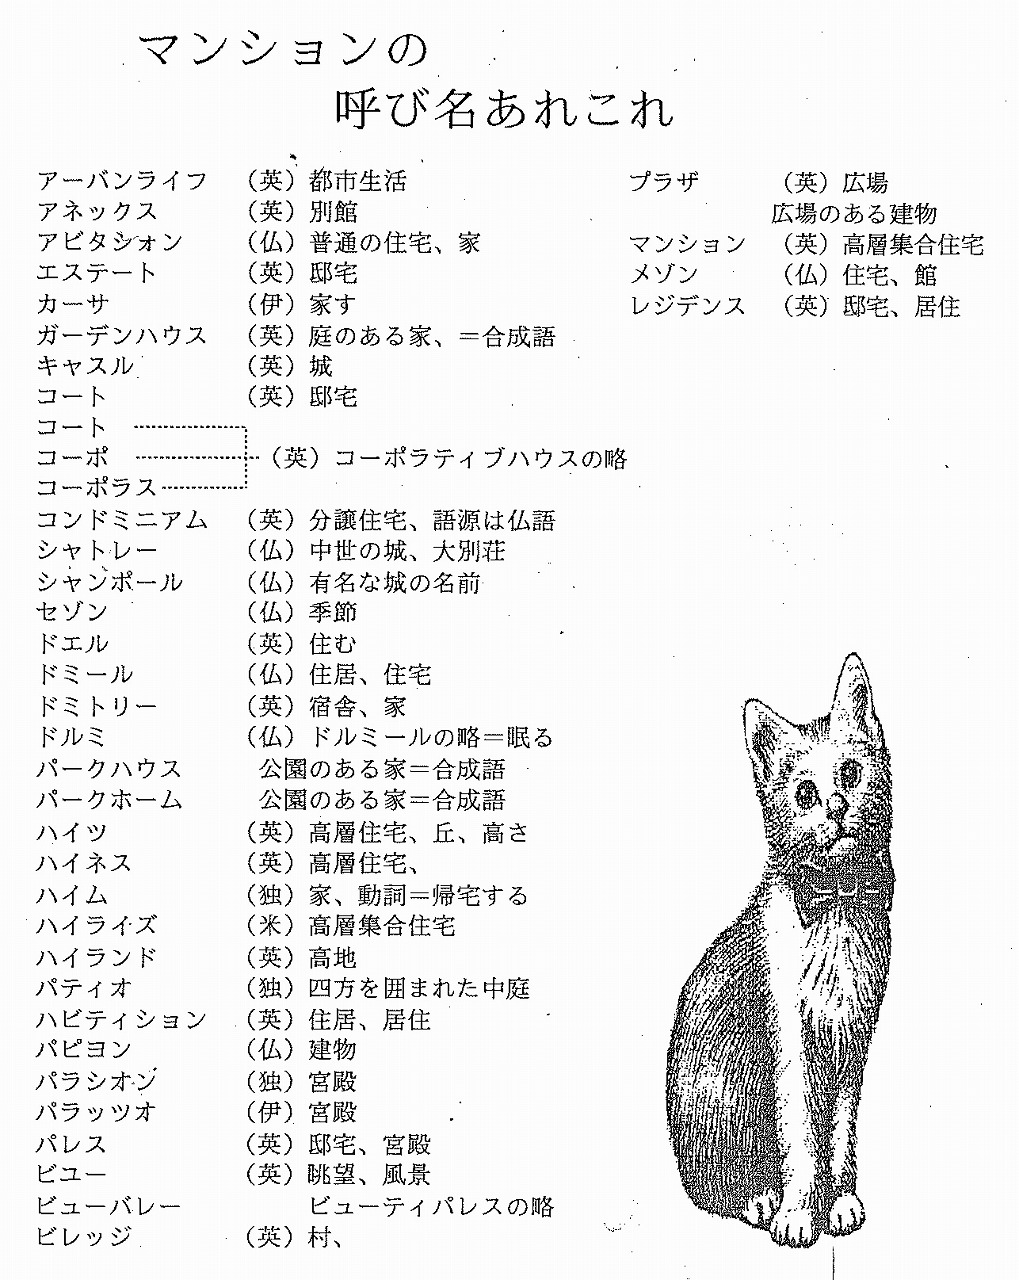 マンションの
呼び名あれこれ
アーバンライフ （英）都市生活
アネックス （英）別館
アビタシォン （仏）普通の住宅、家
エステート （英）邸宅
カーサ （伊）家す
ガーデンハウス （英）庭のある家、＝合成語
キャスル （英）城
コート （英）邸宅
コート
コーポ （英）コーポラティブハウスの略
コーポラス
コンドミニアム （英）分譲住宅、語源は仏語
シャトレー （仏）中世の城、大別荘
シャンポール （仏）有名な城の名前
セゾン （仏）季節
ドエル （英）住む
ドミール （仏）住居、住宅
ドミトリー （英）宿舎、家
ドルミ （仏）ドルミールの略＝眠る
パークハウス 公園のある家＝合成語
パークホーム 公園のある家＝合成語
ハイツ （英）高層住宅、丘、高さ
ハイネス （英）高層住宅、
ハイム （独）家、動詞＝帰宅する
ハイライズ （米）高層集合住宅
ハイランド （英）高地
パティオ （独）四方を囲まれた中庭
ハビティション （英）住居、居住
パピヨン （仏）建物
パラシオン （独）宮殿
パラッツオ （伊）宮殿
パレス （英）邸宅、宮殿
ビユー （英）眺望、風景
ビューバレー ビューティパレスの略
ビレッジ （英）村、
プラザ （英）広場
広場のある建物
マンション （英）高層集合住宅
メゾン （仏）住宅、館
レジデンス （英）邸宅、居住